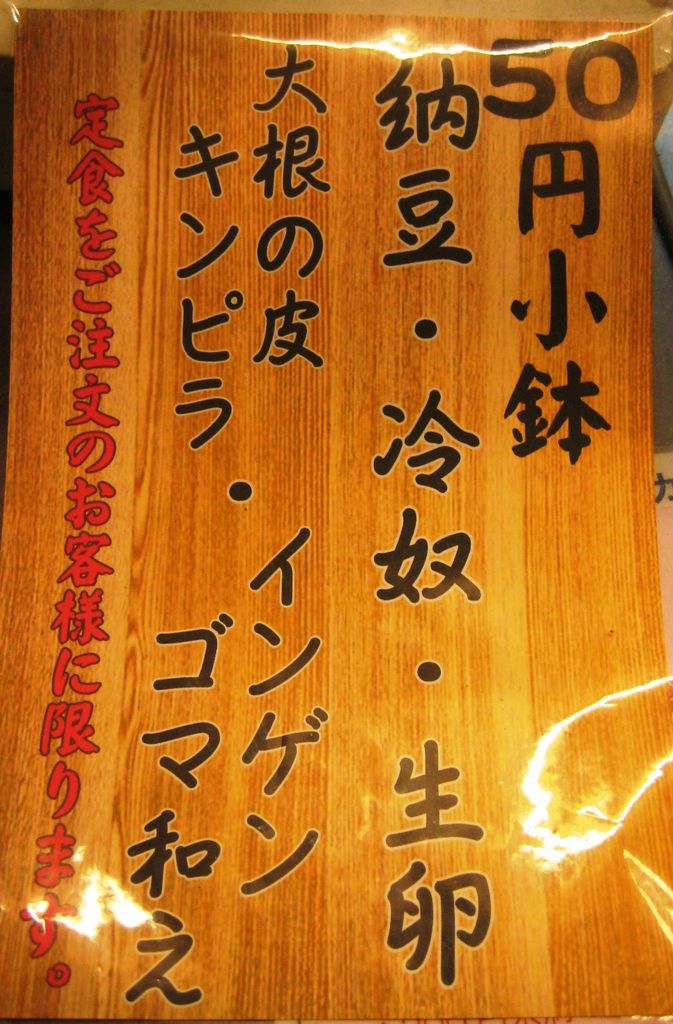 50円小鉢
納豆・冷奴・生卵
大根の皮
キンピラ・インゲン
ゴマ和え
定食をご注文のお客様に限ります。